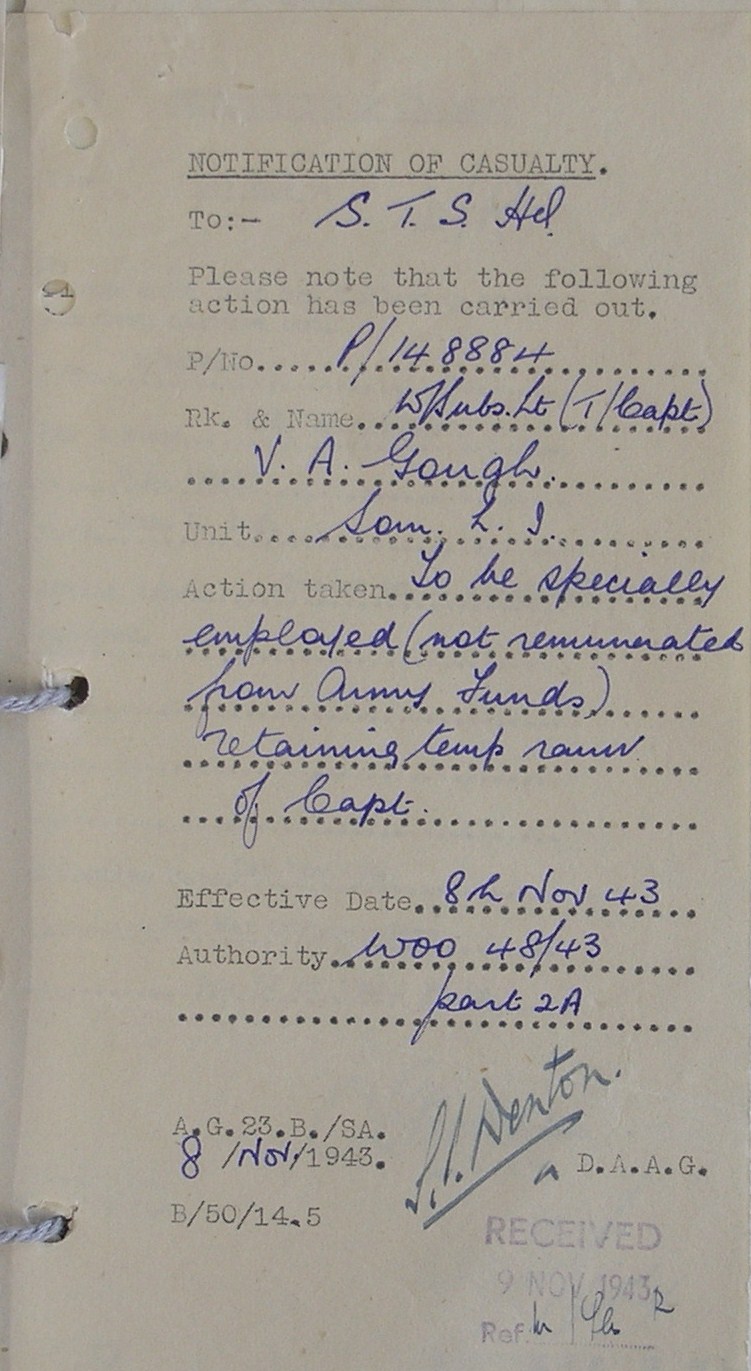 NOTIFICATION OF CASUALTY.
To:- S. T. S. Hd.
Please note that the following
action has been carried out.
P/No..... P/148884
Rk. & Name... W/Subs. Lt (T/Capt)
V. A. Gough.
Unit.... Som. L. I.
Action taken. To be specially
employed (not remunerated
from Army Funds)
retaining temp rank
of Capt.
Effective Date. 8th Nov 43
Authority. WOO 48/43
part 2A
Denton.
A.G.23.B./SA.
8 /Nov/1943.
D.A.A.G.
B/50/14.5
RECEIVED
9 NOV 1943
Ref.